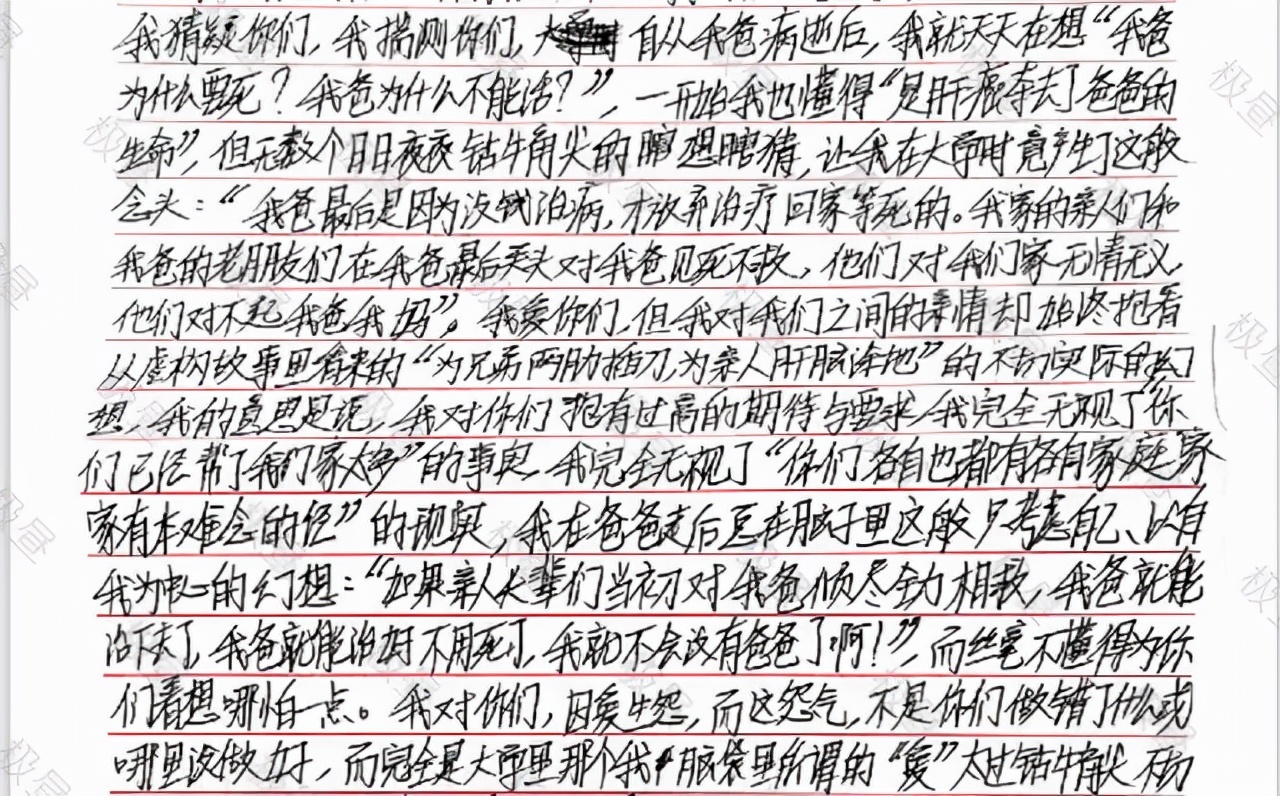 我猜疑你们，我揣测你们，自从我爸病逝后，我就天天在想“我爸
为什么要死？我爸为什么不能活？”，一开始我也懂得“是肝癌夺去了爸爸的
生命”，但无数个日日夜夜钻牛角尖的瞎想瞎猜，让我在大学时竟产生了这般
念头：“我爸最后是因为没钱治病，才放弃治疗回家等死的。我家的亲人们和
我爸的老朋友们在我爸最后关头对我爸见死不救，他们对我们家无情无义，
他们对不起我爸我妈”。我爱你们，但我对我们之间的事情却始终抱着
从虚构故事里看来的“为兄弟两肋插刀，为亲人肝脑涂地”的不切实际的幻
想，我的意思是说，我对你们抱有过高的期待与要求，我完全无视了“你
们已经帮了我们家太多”的事实，我完全无视了“你们各自也都有各自家庭，家
家有本难念的经”的现实，我在爸爸走后总在脑子里这般只考虑自己、以自
我为中心的幻想：“如果亲人长辈们当初对我爸倾尽全力相救，我爸就能
治下去了，我爸就能治好不用死了，我就不会没有爸爸了啊！”，而丝毫不懂得为你
们着想哪怕一点。我对你们，因爱生怨，而这怨气，不是你们做错了什么或
哪里没做好，而完全是大学里那个我脑袋里所谓的“爱”太过钻牛角尖、不切
极昼